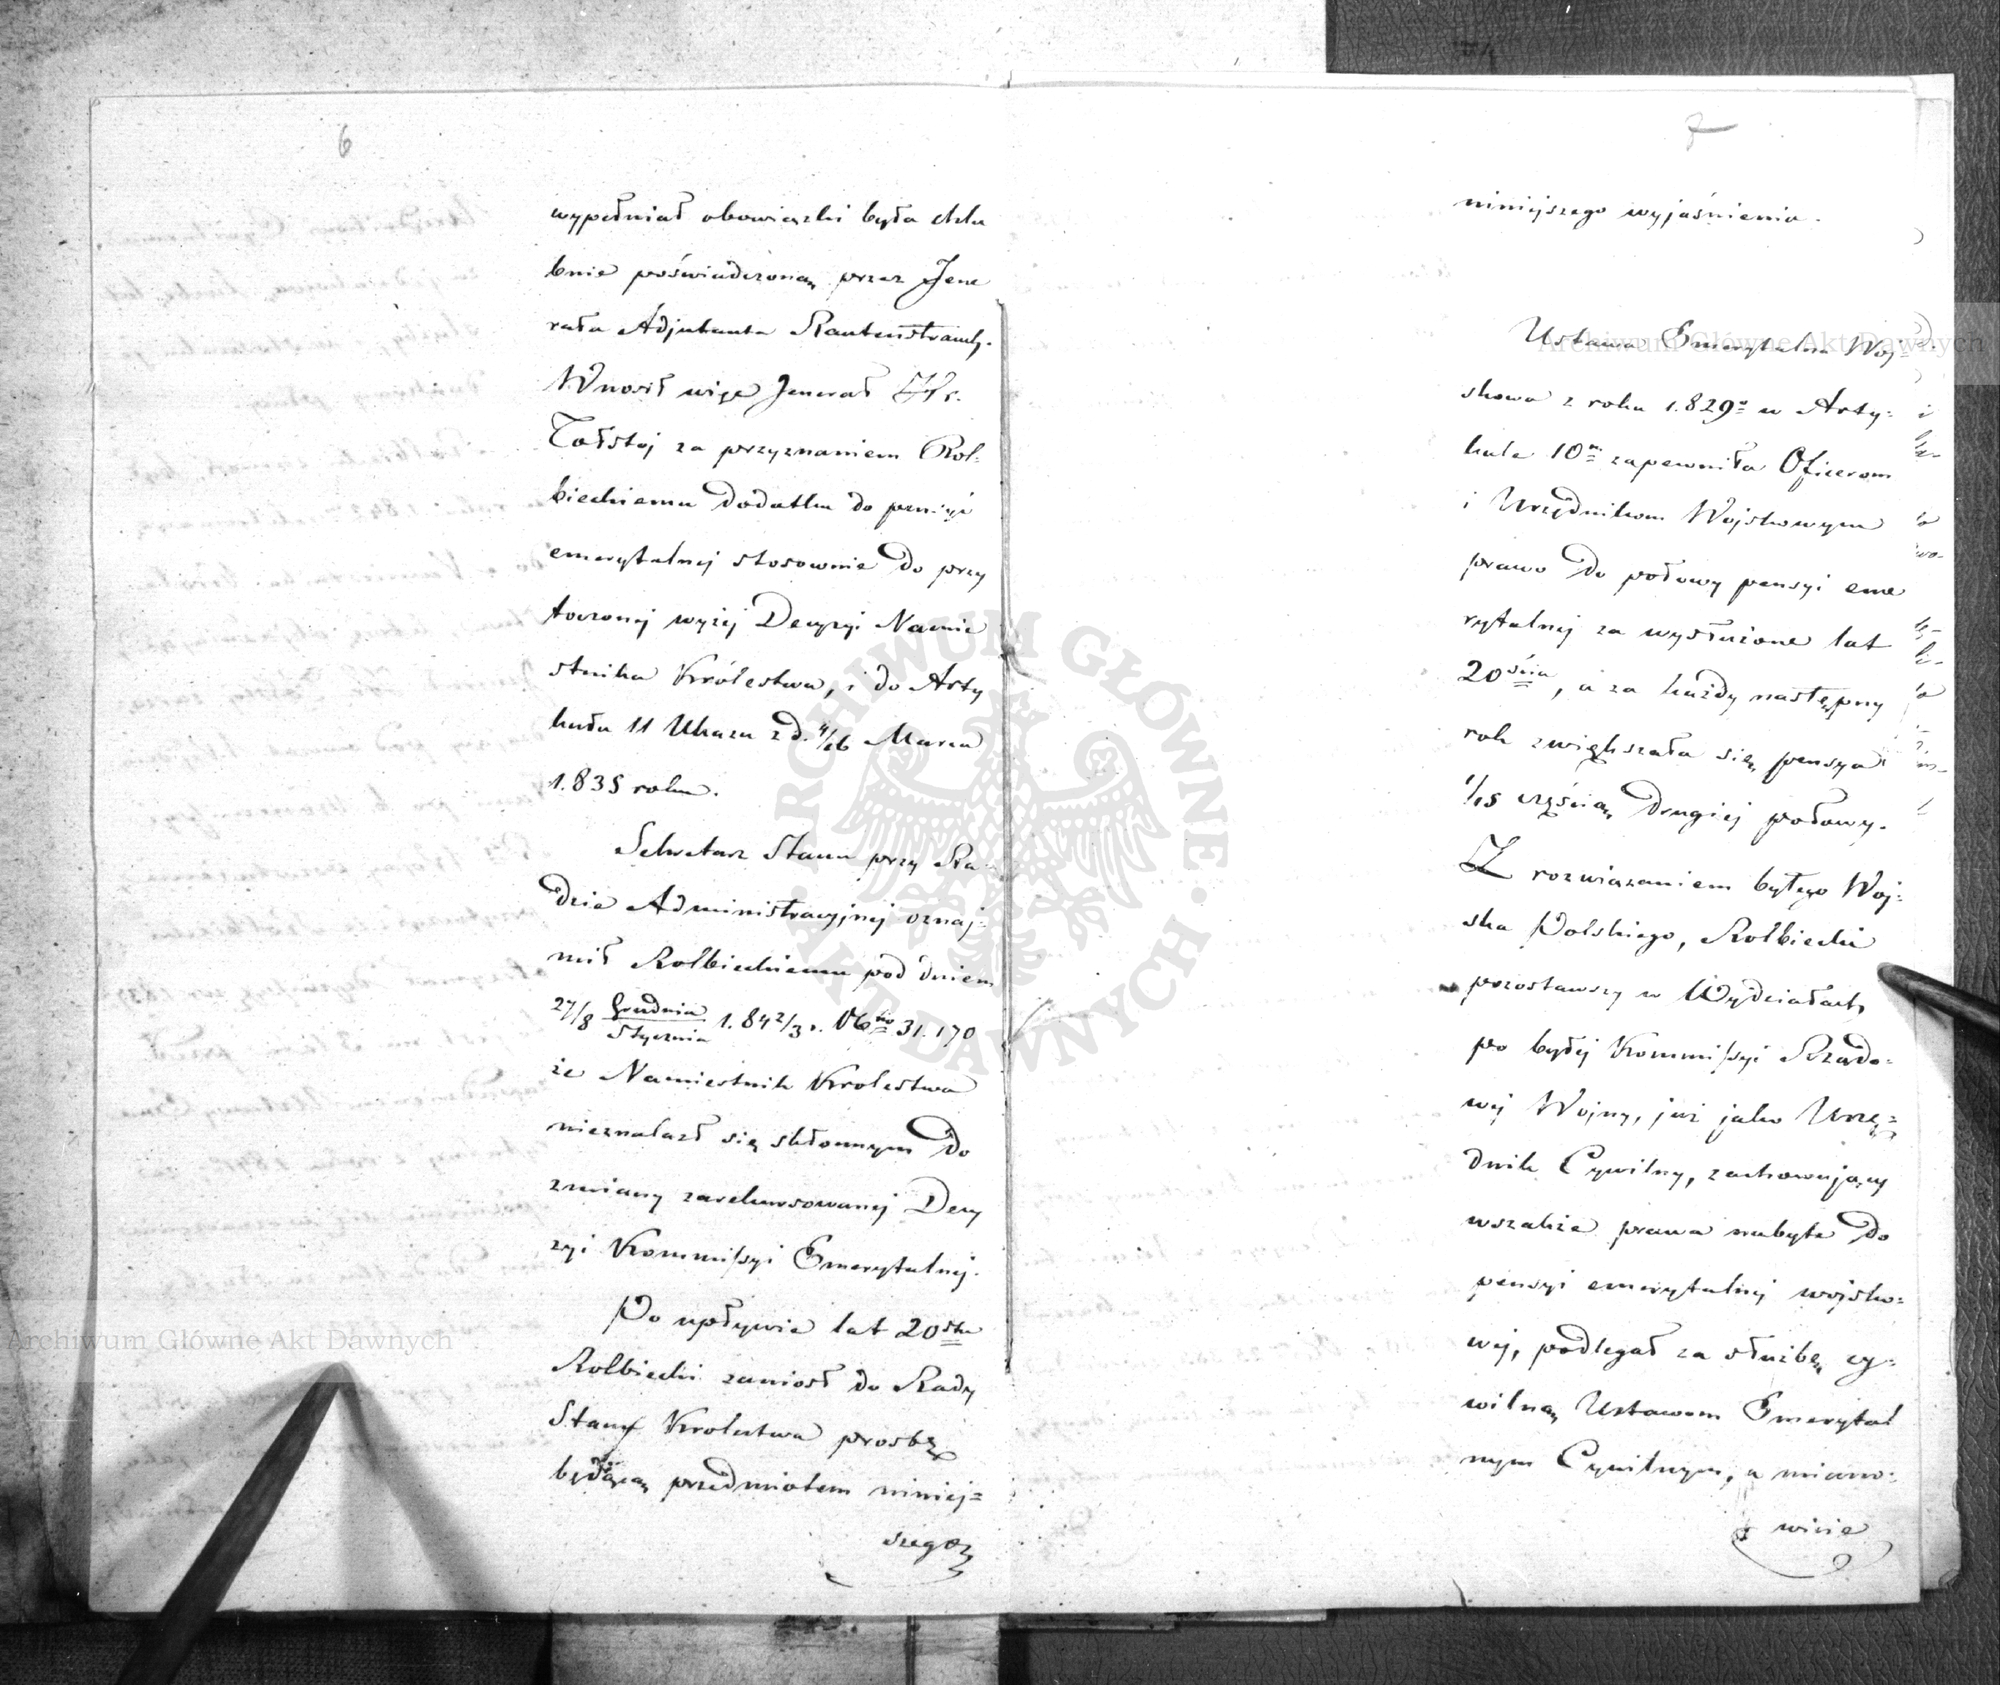 6
wypełniał obowiązki była chlu
bnie poświadczoną przez Jene
rała Adjutanta Rautenstrauch.
Wnosił więc Jenerał Hr.
Tołstoj za przyznaniem Rol-
bieckiemu dodatku do pensyi
emerytalnej stosownie do przy
toczonej wyżej Decyzyi Namie
stnika Królestwa, i do Arty
kułu 11 Ukazu z d. 4/16 Marca
1.835 roku.
Sekretarz Stanu przy Ra-
dzie Administracyjnej oznaj-
mił Rolbieckiemu pod dniem
27/8 Grudnia/Stycznia 1.842/3 r. No 31.170
że Namiestnik Krolestwa
nieznalazł się skłonnym do
zmiany zarekursowanej Decy
zyi Kommissyi Emerytalnej.
Po upływie lat 20stu
Rolbiecki zaniosł do Rady
Stanu Krolestwa prosbę
będącą przedmiotem niniej=
szego
7
niniejszego wyjaśnienia.
Ustawa Emerytalna Woj-
skowa z roku 1.829o w Arty-
kule 10m zapewniła Oficerom
i Urzędnikom Wojskowym
prawo do połowy pensyi eme
rytalnej za wysłużone lat
20ścia, a za każdy następny
rok zwiększała się pensya
1/15 częścią drugiej połowy.
Z rozwiązaniem byłego Woj-
ska Polskiego, Rolbiecki
pozostawszy w Wydziałach
po byłej Kommissyi Rządo-
wej Wojny, już jako Urzę=
dnik Cywilny, zachowujący
wszakże prawa nabyte do
pensyi emerytalnej wojsko=
wej, podlegał za służbę cy=
wilną Ustawom Emerytal
nym Cywilnym, a miano-
wicie
Archiwum Główne Akt Dawnych
Archiwum Główne Akt Dawnych
ARCHIWUM GŁÓWNE
AKT DAWNYCH